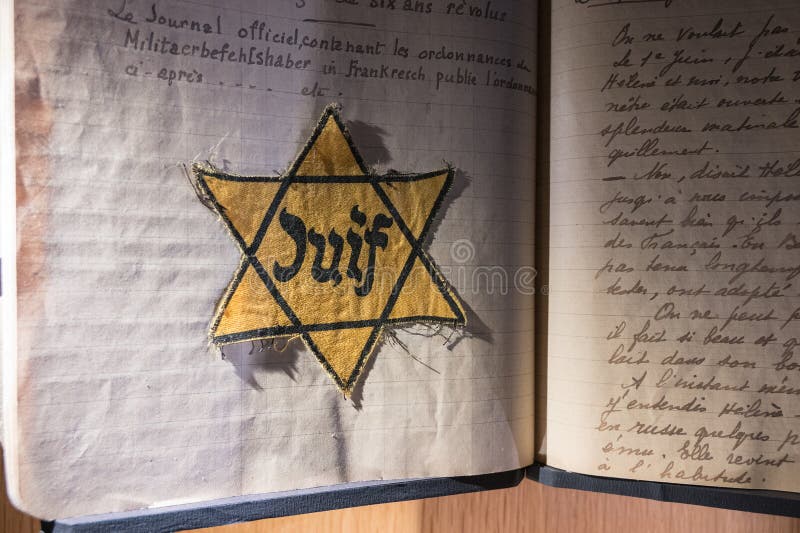 de six ans révolus
Le Journal officiel, contenant les ordonnances du
Militaerbefehlshaber in Frankreich publie l'ordonnance
ci-après ..... etc.
Juif
On ne voulait pas
le 1er Juin, j'étais
Hélène et moi, notre
nêtre était ouverte
splendeur matinale
quillement.
— Non, disait Hél
jusqu'à nous impos
savent bien qu'ils
des Français. En Be
pas tenu longtemps
ont adopté
On ne peut p
il fait si beau et qu
lait dans son bo
A l'instant mêm
j'entendis Hélène
en russe quelques p
ému. Elle revint
à l'habitude.
dreamstime